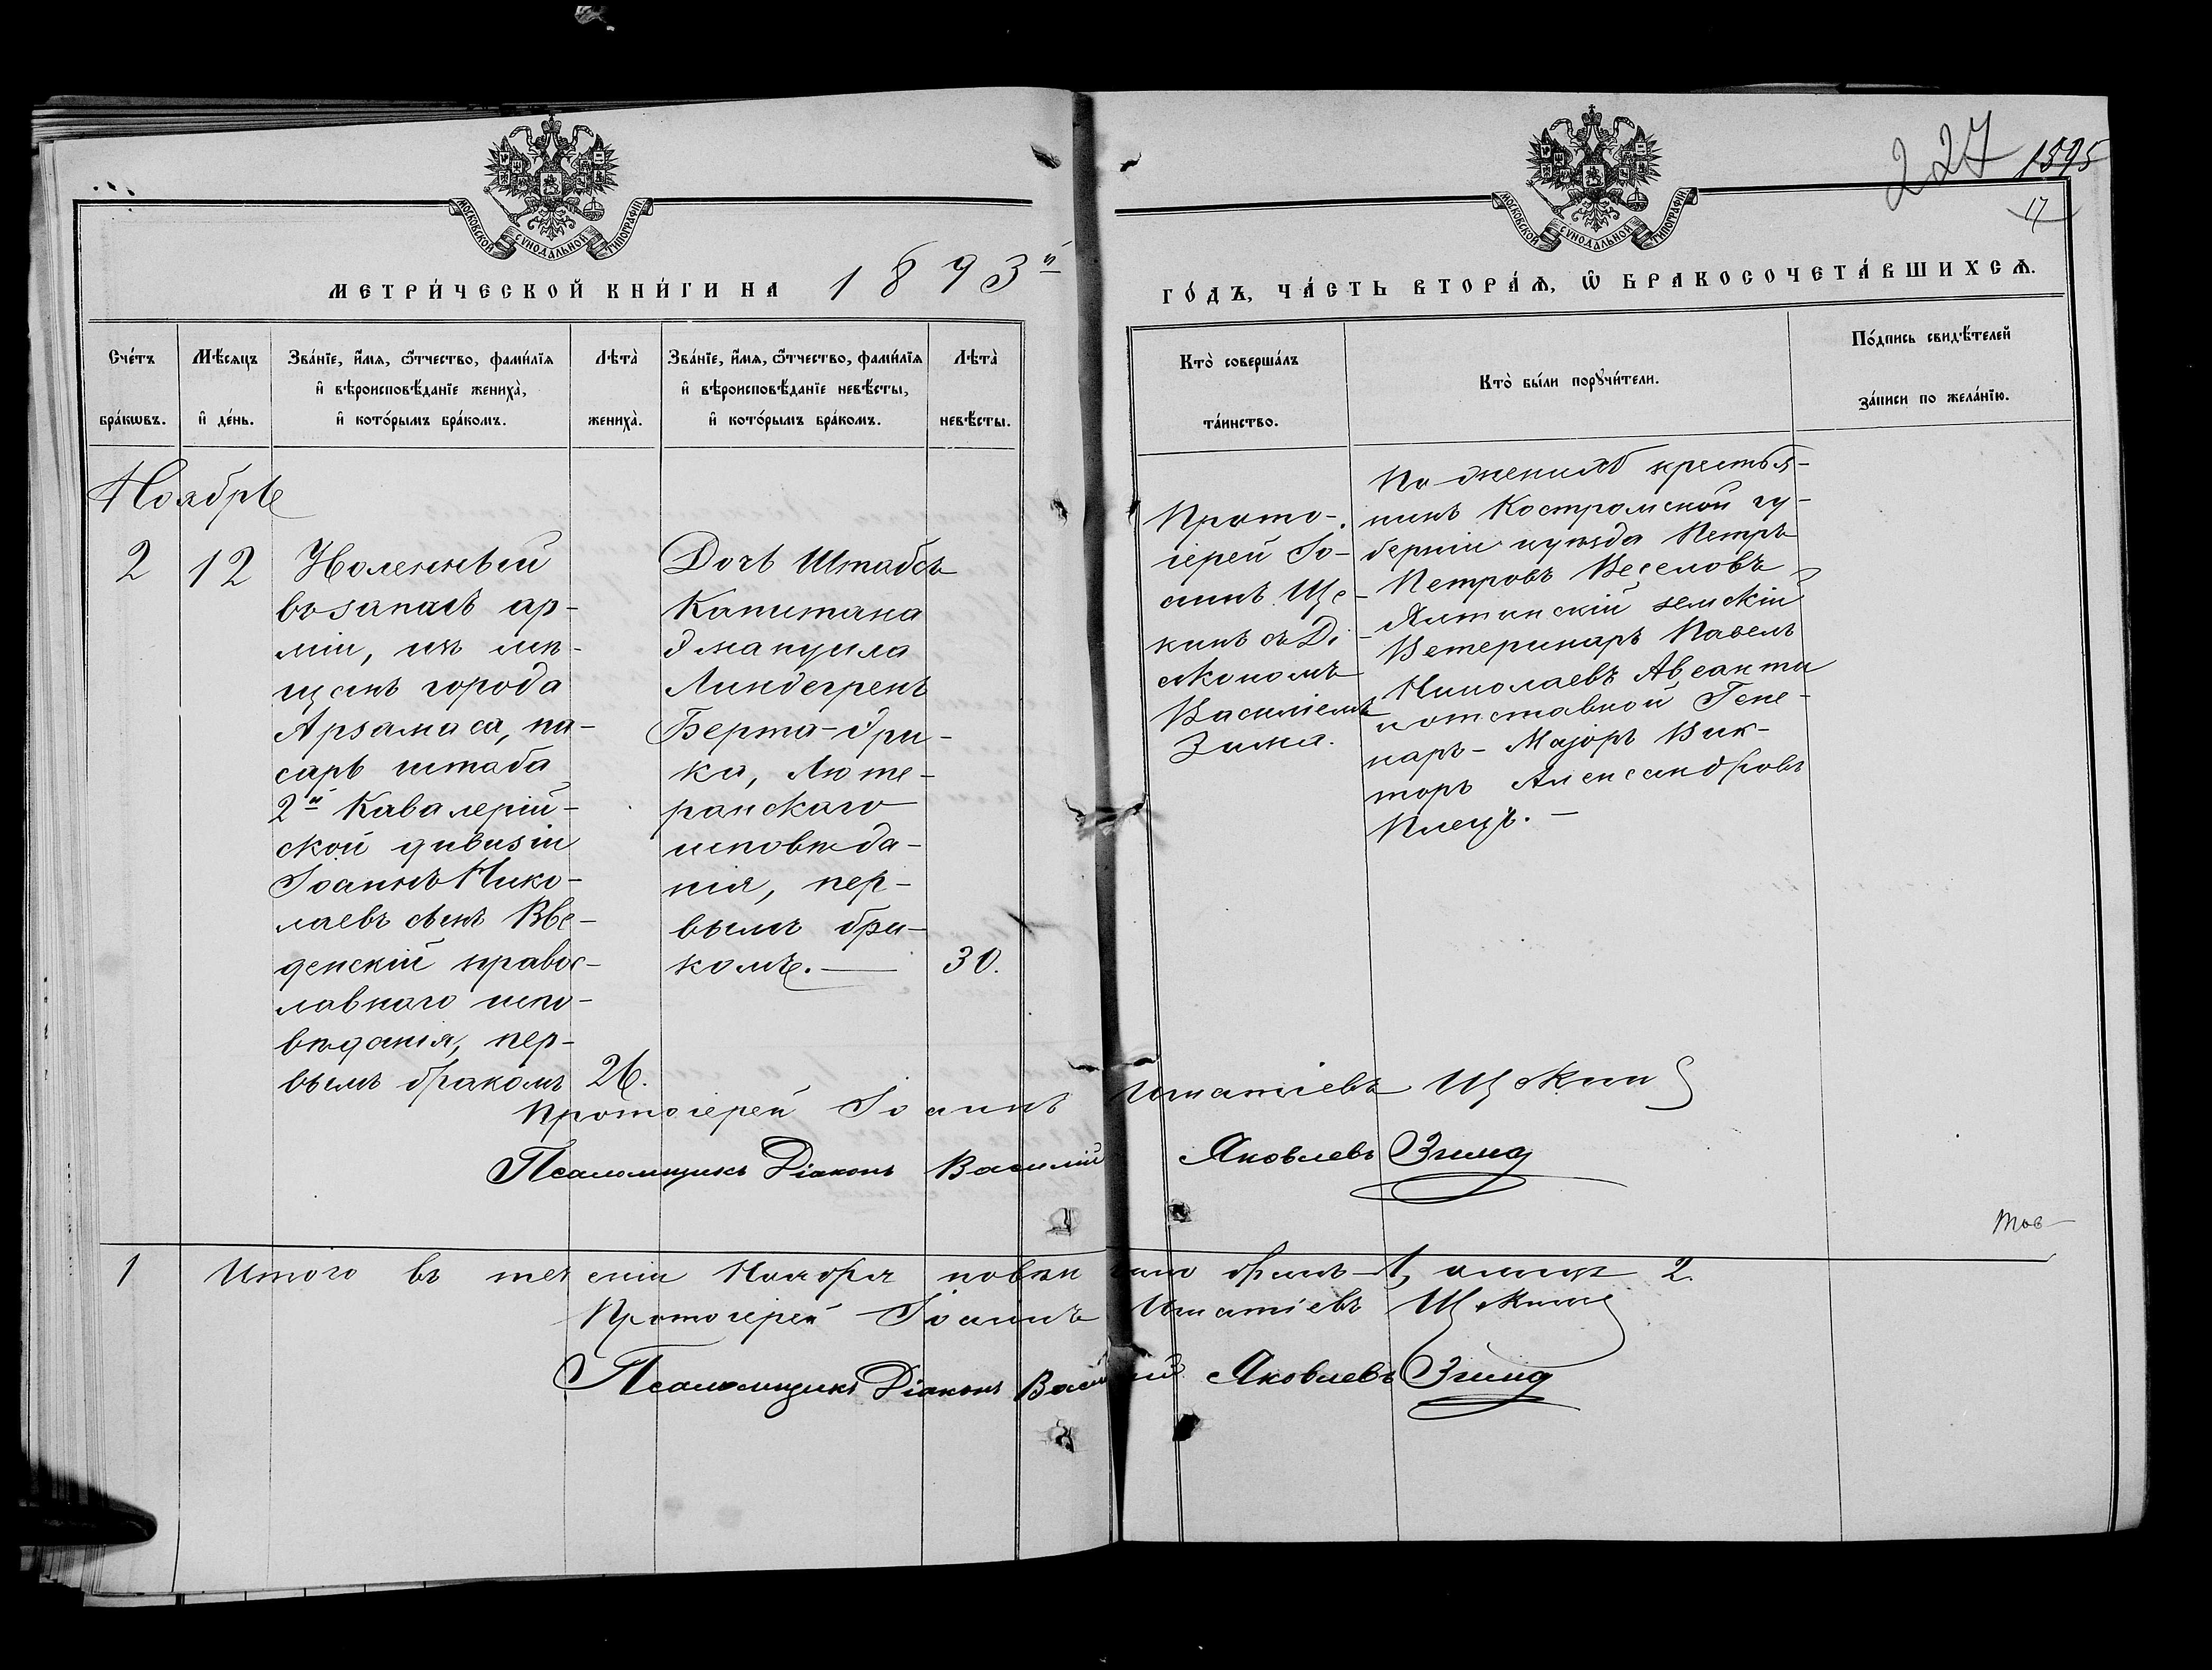 227 1595
17
МОСКОВСКОЙ СУНОДАЛЬНОЙ ТИПОГРАФІИ
МОСКОВСКОЙ СУНОДАЛЬНОЙ ТИПОГРАФІИ
МЕТРИ́ЧЕСКОЙ КНИ́ГИ НА 1893й
ГО́ДЪ, ЧА́СТЬ ВТОРА́Ѧ, Ѿ БРАКОСОЧЕТА́ВШИХСѦ.
Сче́тъ бра́кѡвъ.
Мѣ́сяцъ и҆ де́нь.
Зва́нїе, и҆́мѧ, ѻ҆́тчество, фами́лїѧ
и҆ вѣроисповѣ́данїе жениха̀,
и҆ кото́рымъ бра́комъ.
Лѣта̀ жениха̀.
Зва́нїе, и҆́мѧ, ѻ҆́тчество, фами́лїѧ
и҆ вѣроисповѣ́данїе невѣ́сты,
и҆ кото́рымъ бра́комъ.
Лѣта̀ невѣ́сты.
Кто̀ соверша́лъ
та́инство.
Кто̀ бы́ли порꙋчи́тели.
По́дпись свидѣ́телей
за́писи по жела́нїю.
Ноябрь
2
12
Уволенный
въ запасъ ар-
міи, изъ мѣ-
щанъ города
Арзамаса, пи-
сарь штаба
2й Кавалерій-
ской дивизіи
Іоаннъ Нико-
лаевъ сынъ Вве-
денскій правос-
лавнаго испо-
вѣданія, пер-
вымъ бракомъ
26.
Дочь Штабсъ
Капитана
Эмануила
Линдегренъ
Берта-Эри-
ка, Люте-
ранскаго
исповѣда-
нія, пер-
вымъ бра-
комъ.
30.
Прото-
іерей Іо-
аннъ Ще-
кинъ съ Ді-
акономъ
Василіемъ
Зима.
По женихѣ крестья-
нинъ Костромской гу-
берніи и уѣзда Петръ
Петровъ Веселовъ
Ялтинскій земскій
Ветеринаръ Павелъ
Николаевъ
и отставной Гене-
ралъ-Маіоръ Вик-
торъ Александровъ
Протоіерей Іоаннъ Игнатіевъ Щекинъ
Псаломщикъ Діаконъ Василій Яковлевъ Зима
1 Итого въ теченіи Ноября повѣнчано браковъ 1, а лицъ 2.
Протоіерей Іоаннъ Игнатіевъ Щекинъ
Псаломщикъ Діаконъ Василій Яковлевъ Зима